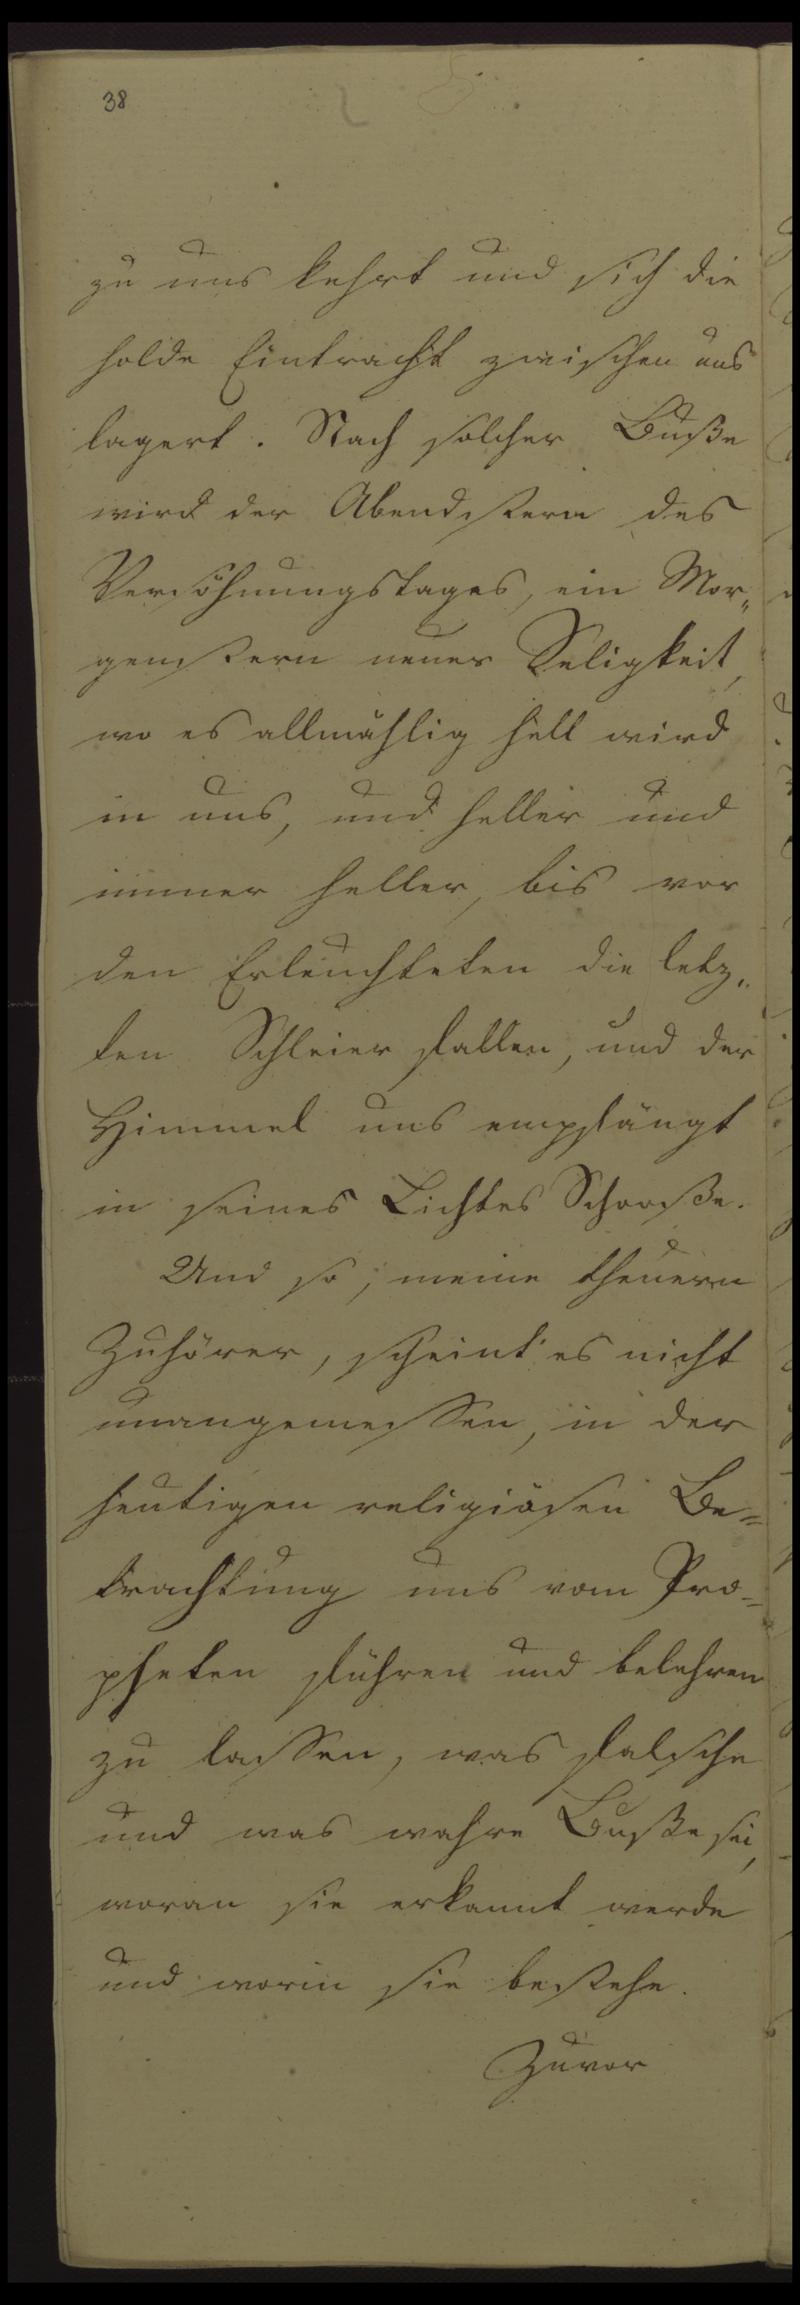 38
zu uns kehrt und sich die
holde Eintracht zwischen uns
lagert. Nach solcher Buße
wird der Abendstern des
Versöhnungstages, ein Mor„
genstern neuer Seligkeit,
wo es allmählig hell wird
in uns, und heller und
immer heller, bis vor
den Erleuchteten die letz„
ten Schleier fallen, und der
Himmel uns empfängt
in seines Lichtes Schooße.
Und so, meine theuern
Zuhörer, scheint es nicht
unangemessen, in der
heutigen religiösen Be=
trachtung uns vom Pro=
pheten führen und belehren
zu lassen, was falsche
und was wahre Buße sei,
woran sie erkannt werde
und worin sie bestehe.
Zuvor